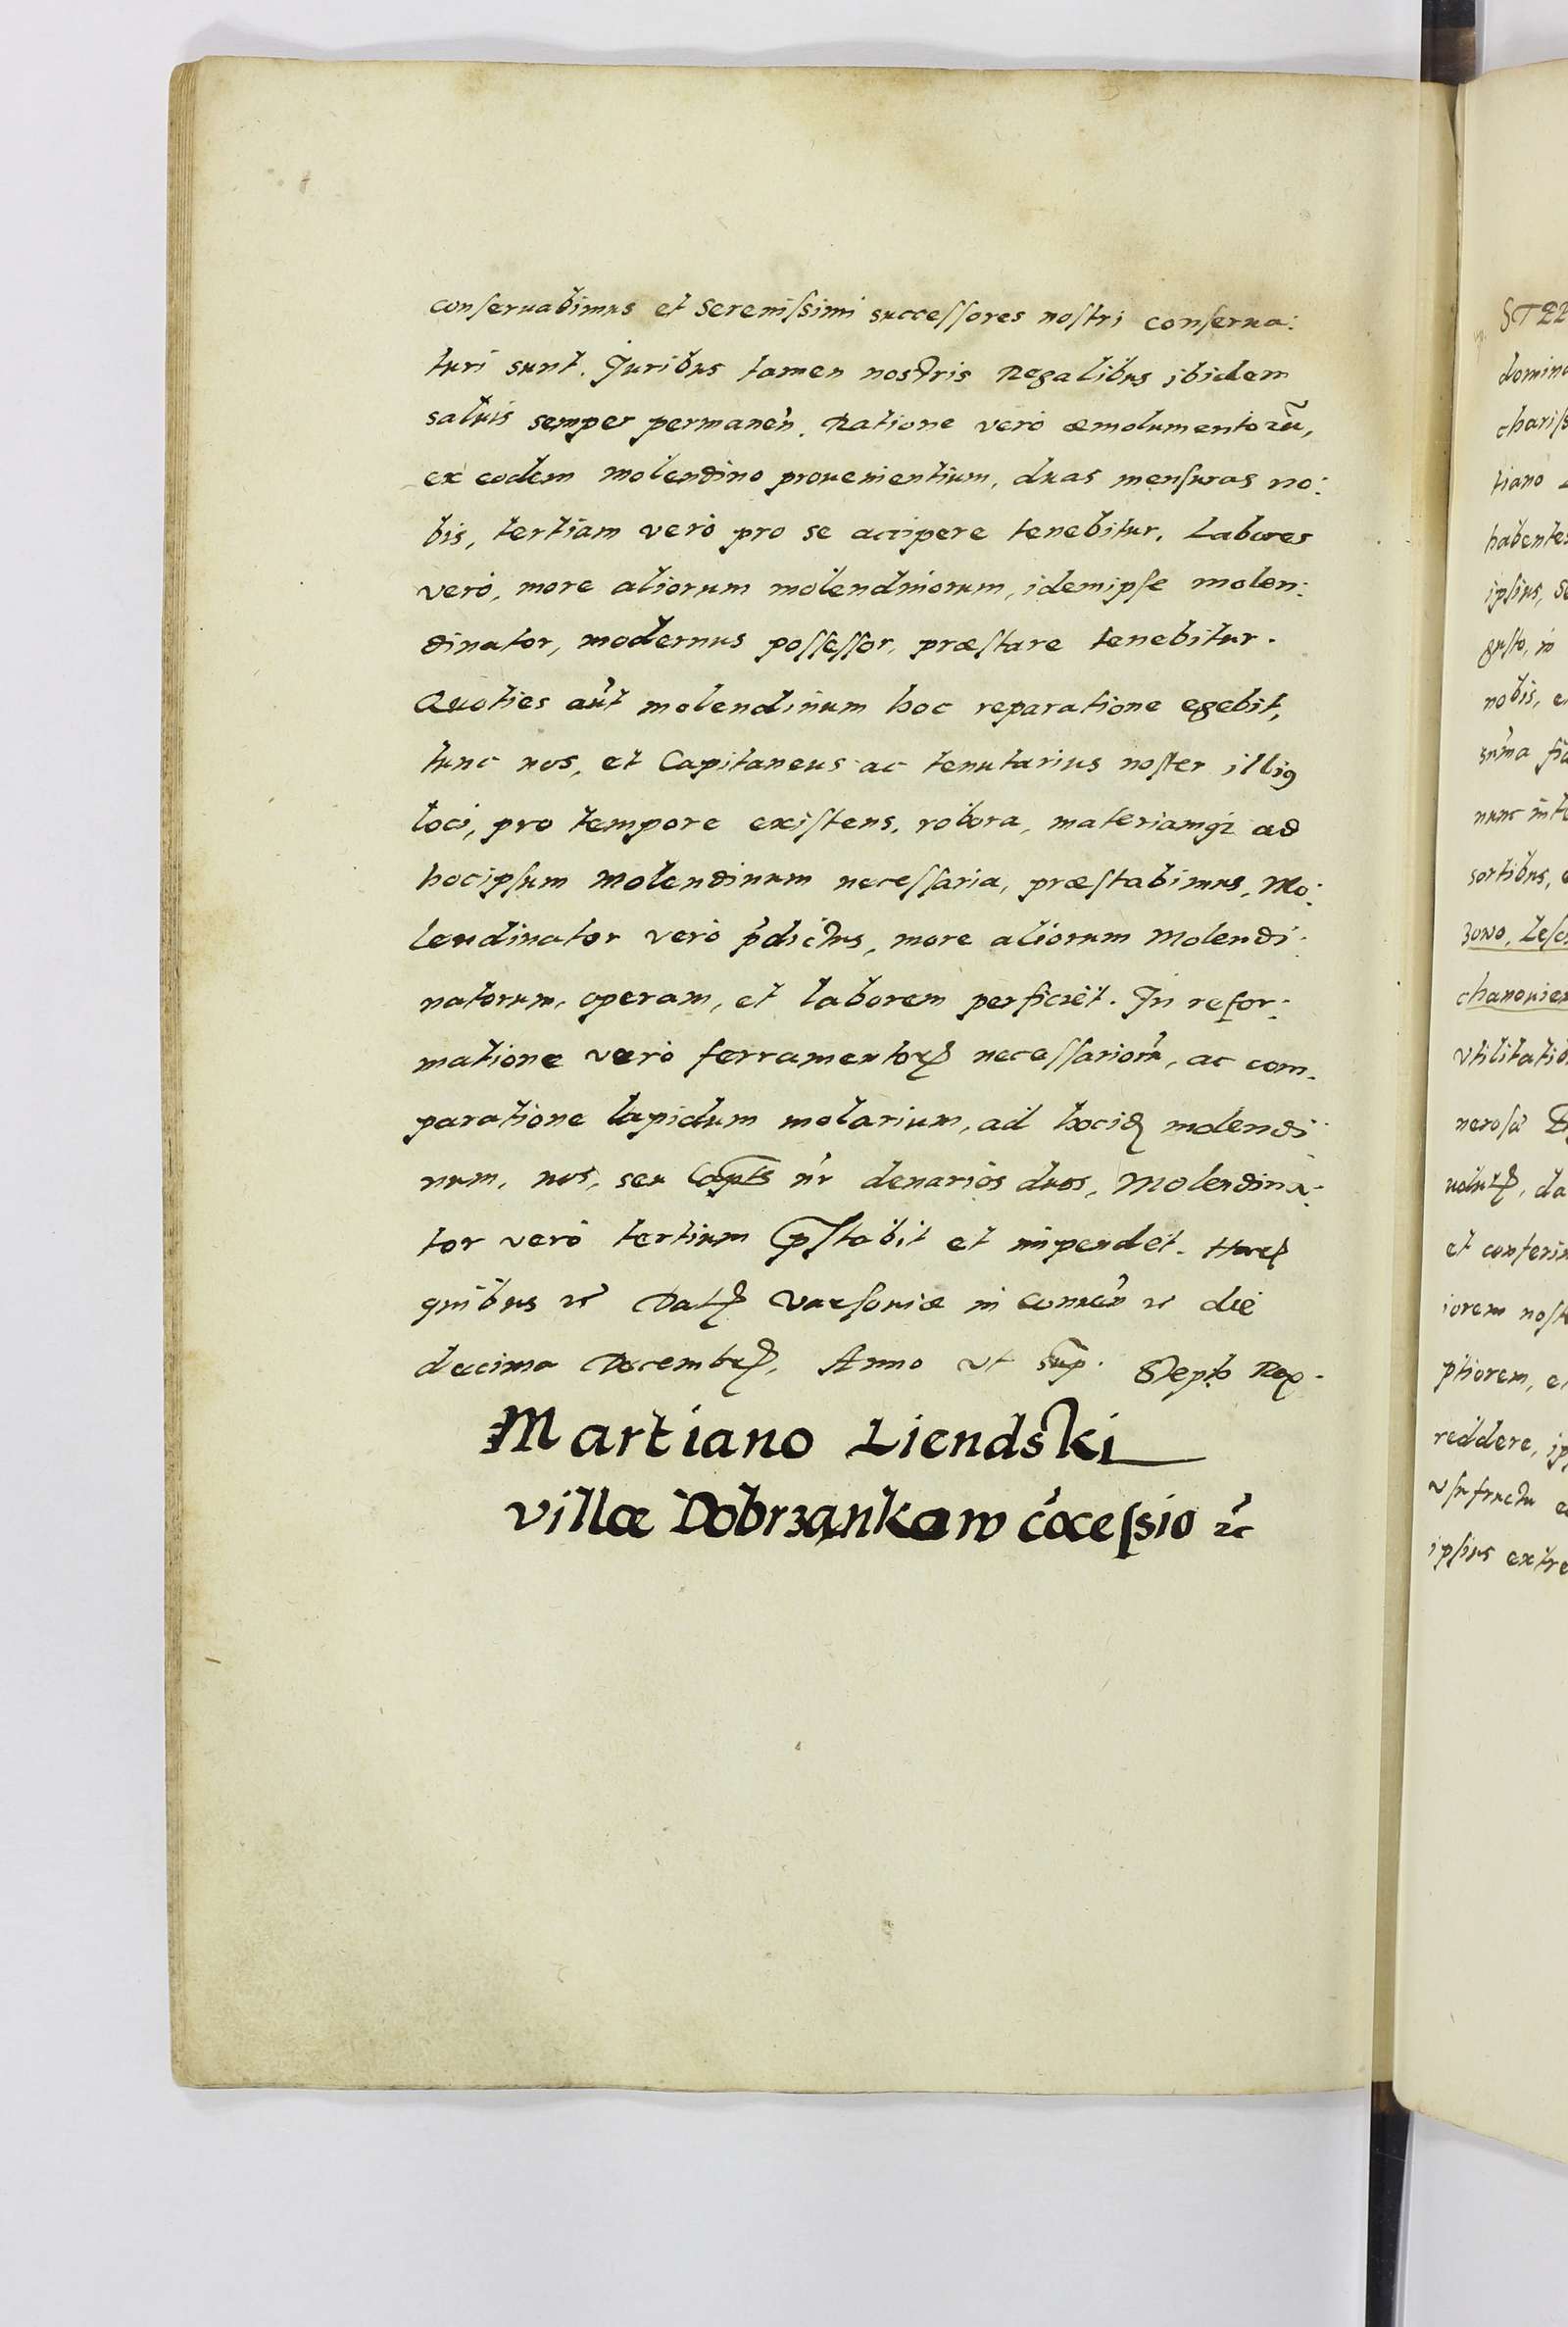 conseruabimus et serenissimi successores nostri conserua:
turi sunt. Juribus tamen nostris Regalibus ibidem
saluis semper permanen̄. Ratione verò æmolumentorū,
ex eodem molendino prouenientium, duas mensuras no:
bis, tertiam verò pro se accipere tenebitur. Labores
verò, more aliorum molendinorum, idemipse molen:
dinator, modernus possessor, præstare tenebitur.
Quoties aūt molendinum hoc reparatione egebit,
tunc nos, et Capitaneus ac tenutarius noster illiꝰ
loci, pro tempore existens, robora, materiamqꝫ ad
hocipsum molendinum necessaria, præstabimus, Mo:
lendinator verò p̄dictus, more aliorum Molendi:
natorum, operam, et laborem perficiet. In refor:
matione verò ferramentoꝝ necessariorū, ac com:
paratione lapidum molarium, ad hocid molendi:
num, nos, seu Capts nr̄ denarios duos, Molendina:
tor verò tertium p̄stabit et impendet. Haꝝ
quibus ꝛc̄ Datꝭ Varsouiæ in comicn̄ ꝛc die
decima Decembrꝭ, Anno ut sup̄. Stephs Rex.
Martiano Liendski
villæ Dobrzankow c̄ocessio ꝛc̄
domin
charis
tiano
habentes
ipsius, s
gusto, in
nobis, e
sortibus, e
zowo, Lesc
chanouien
vtilitatib
nerosū
et conferi
iorem nost
ptiorem, e
reddere, ip
vsufructu e
ipsius extre